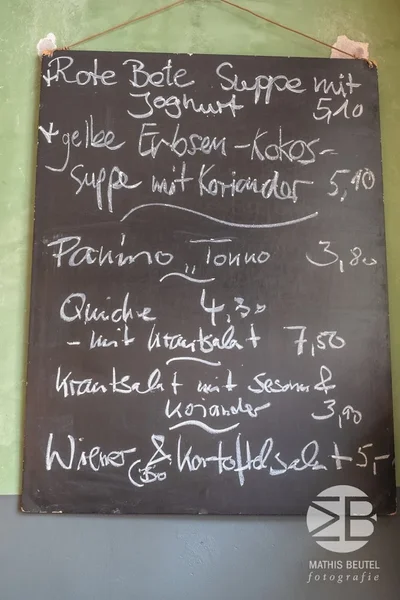 * Rote Bete Suppe mit
Joghurt 5,10
* gelbe Erbsen-Kokos-
Suppe mit Koriander 5,10
Panino "Tonno 3,80
Quiche 4,30
- mit Krautsalat 7,50
Krautsalat mit Sesam &
Koriander 3,90
Wiener & Kartoffelsalat 5,-
MATHIS BEUTEL
fotografie